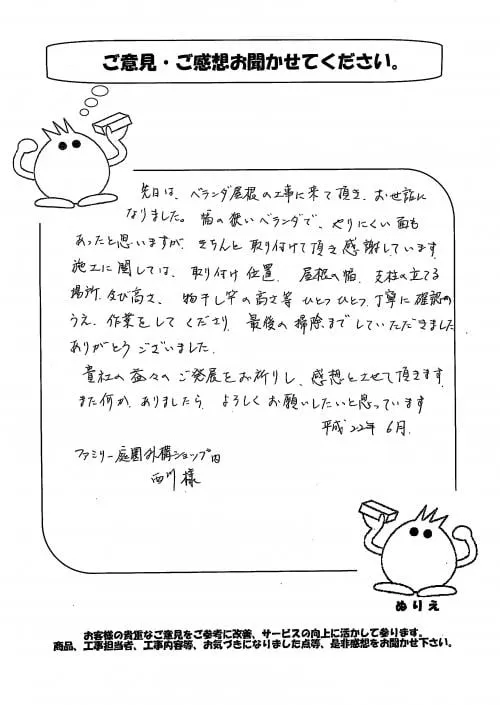 ご意見・ご感想お聞かせてください。
先日は、ベランダ屋根の工事に来て頂き、お世話に
なりました。幅の狭いベランダで、やりにくい面も
あったと思いますが、きちんと取り付けて頂き感謝しています
施工に関しては、取り付け位置、屋根の幅、支柱の立てる
場所、及び高さ、物干し竿の高さ等 ひとつひとつ、丁寧に確認の
うえ、作業をしてくださり、最後の掃除までしていただきました
ありがとうございました。
貴社の益々のご発展をお祈りし、感想とさせて頂きます
また何か、ありましたら、よろしくお願いしたいと思っています
平成22年6月
ファミリー庭園外構ショップ内
西川様
ぬりえ
お客様の貴重なご意見をご参考に改善、サービスの向上に活かして参ります。
商品、工事担当者、工事内容等、お気づきになりました点等、是非感想をお聞かせ下さい。